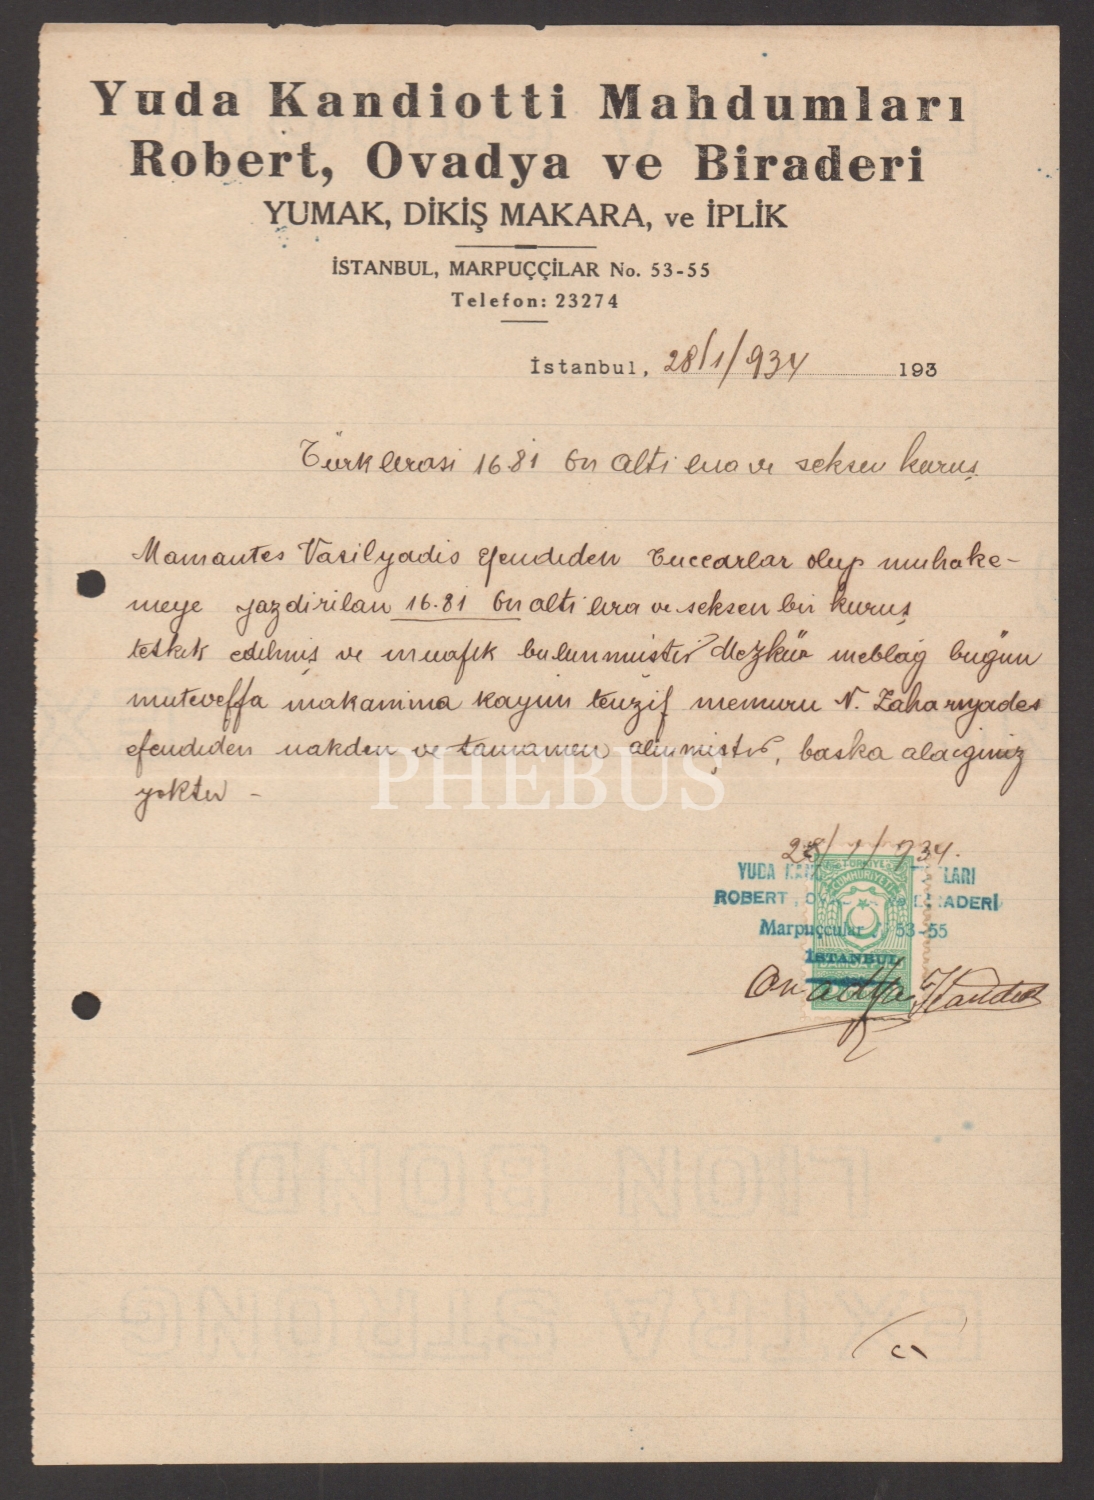 Yuda Kandiotti Mahdumları
Robert, Ovadya ve Biraderi
YUMAK, DİKİŞ MAKARA, ve İPLİK
İSTANBUL, MARPUÇÇİLAR No. 53-55
Telefon: 23274
İstanbul, 28/1/934 193
Türk lirasi 16.81 on alti lira ve seksen kuruş
Mamantes Vasilyadis efendiden tuccarlar olup muhake-
meye yazdirilan 16.81 on alti lira ve seksen bir kuruş
tetkik edilmiş ve muafik bulunmustir Mezkür meblağ bugün
muteveffa makamina kayim memuru N. Zaharyades
efendiden nakden ve tamamen alinmiştir, baska alacaginiz
yoktur -
PHEBUS
28/1/934.
YUDA LARI
ROBERT, BİRADERİ
Marpuççular 53-55
İSTANBUL
TÜRKİYE
CUMHURİYETİ
Ovadya Kandioti
LION BOND
EXTRA STRONG